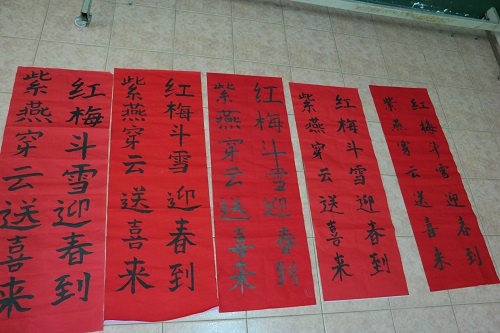 红梅斗雪迎春到
紫燕穿云送喜来
红梅斗雪迎春到
紫燕穿云送喜来
红梅斗雪迎春到
紫燕穿云送喜来
红梅斗雪迎春到
紫燕穿云送喜来
红梅斗雪迎春到
紫燕穿云送喜来